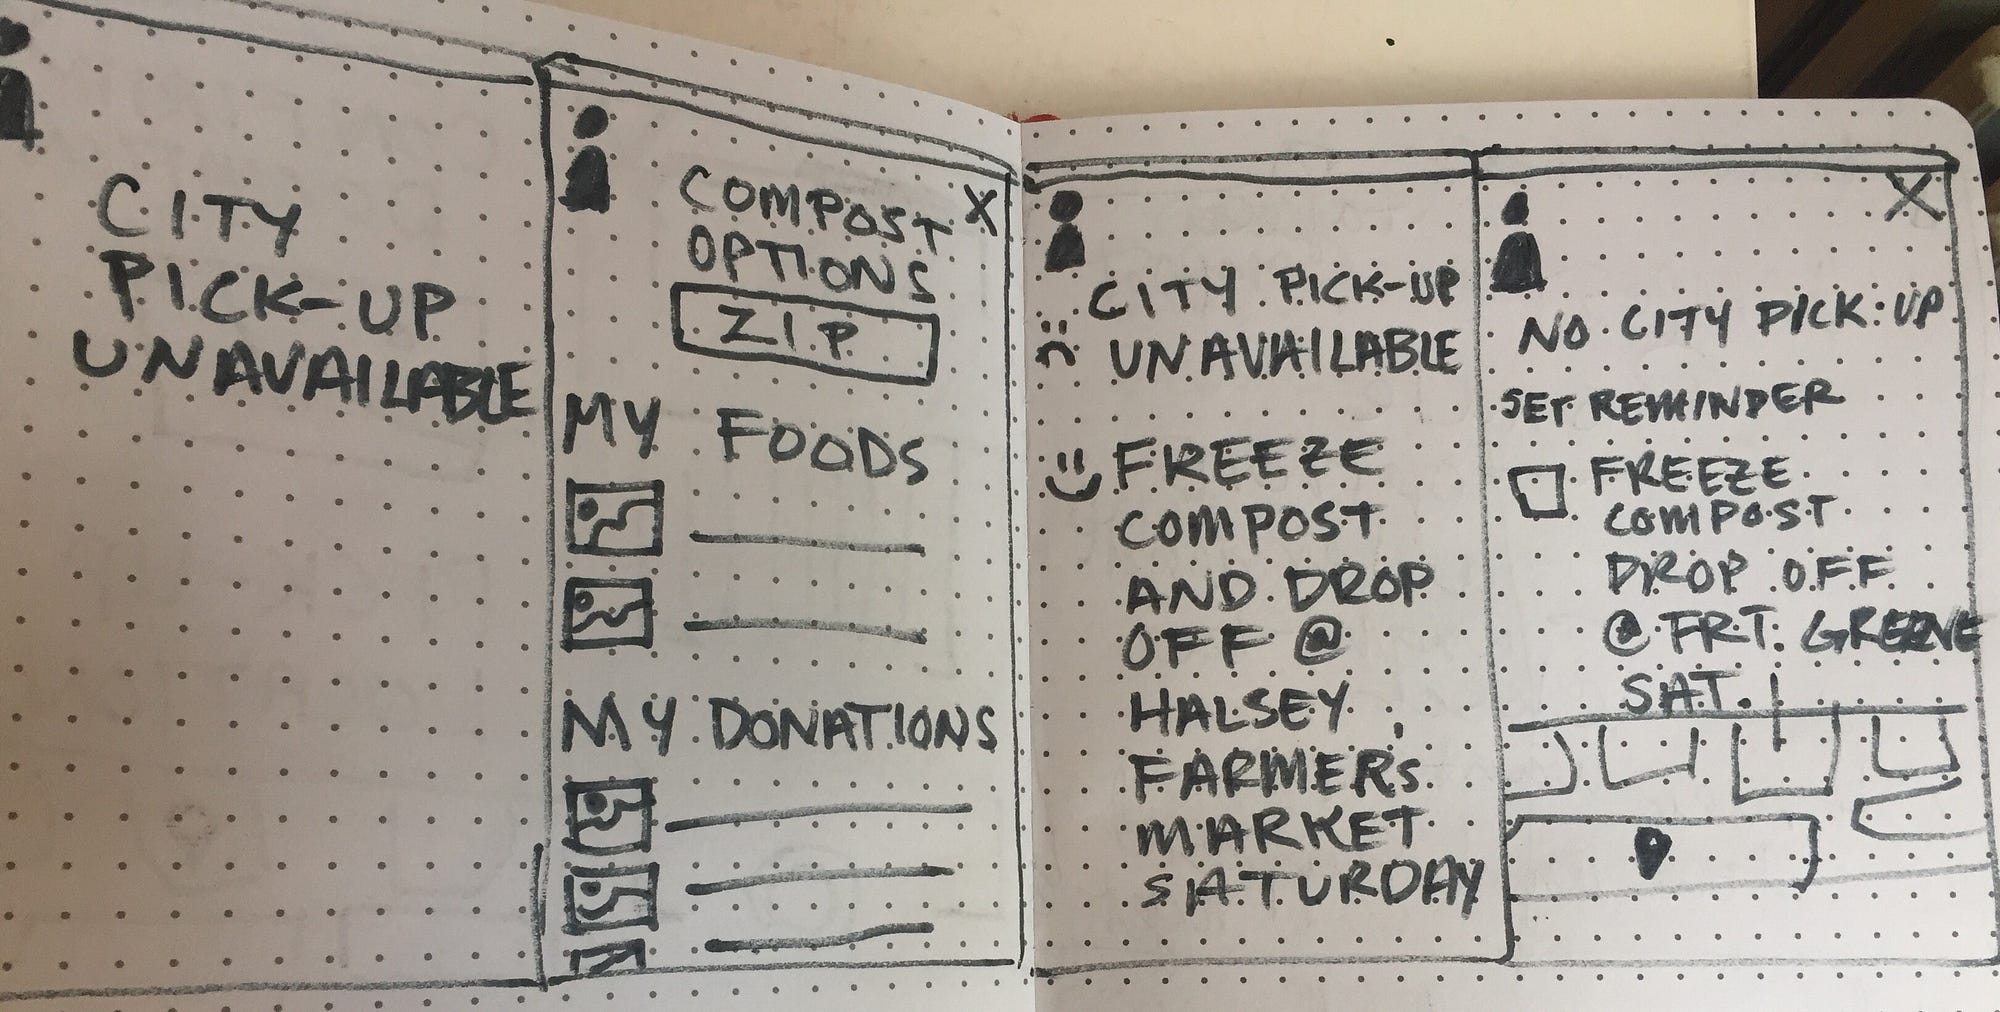 CITY
PICK-UP
UNAVAILABLE
COMPOST X
OPTIONS
ZIP
MY FOODS
MY DONATIONS
CITY PICK-UP
UNAVAILABLE
FREEZE
COMPOST
AND DROP
OFF @
HALSEY
FARMERS
MARKET
SATURDAY
X
NO CITY PICK UP
SET REMINDER
FREEZE
COMPOST
DROP OFF
@ FRT. GREENE
SAT.